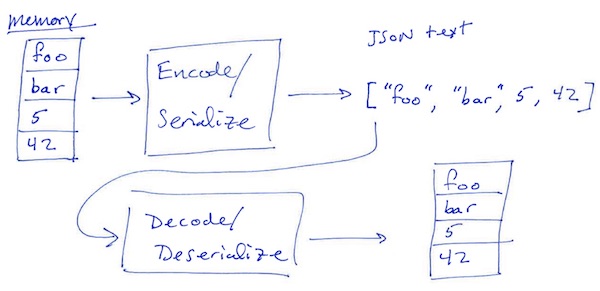 memory
foo
bar
5
42
Encode/
Serialize
JSON text
["foo", "bar", 5, 42]
Decode/
Deserialize
foo
bar
5
42